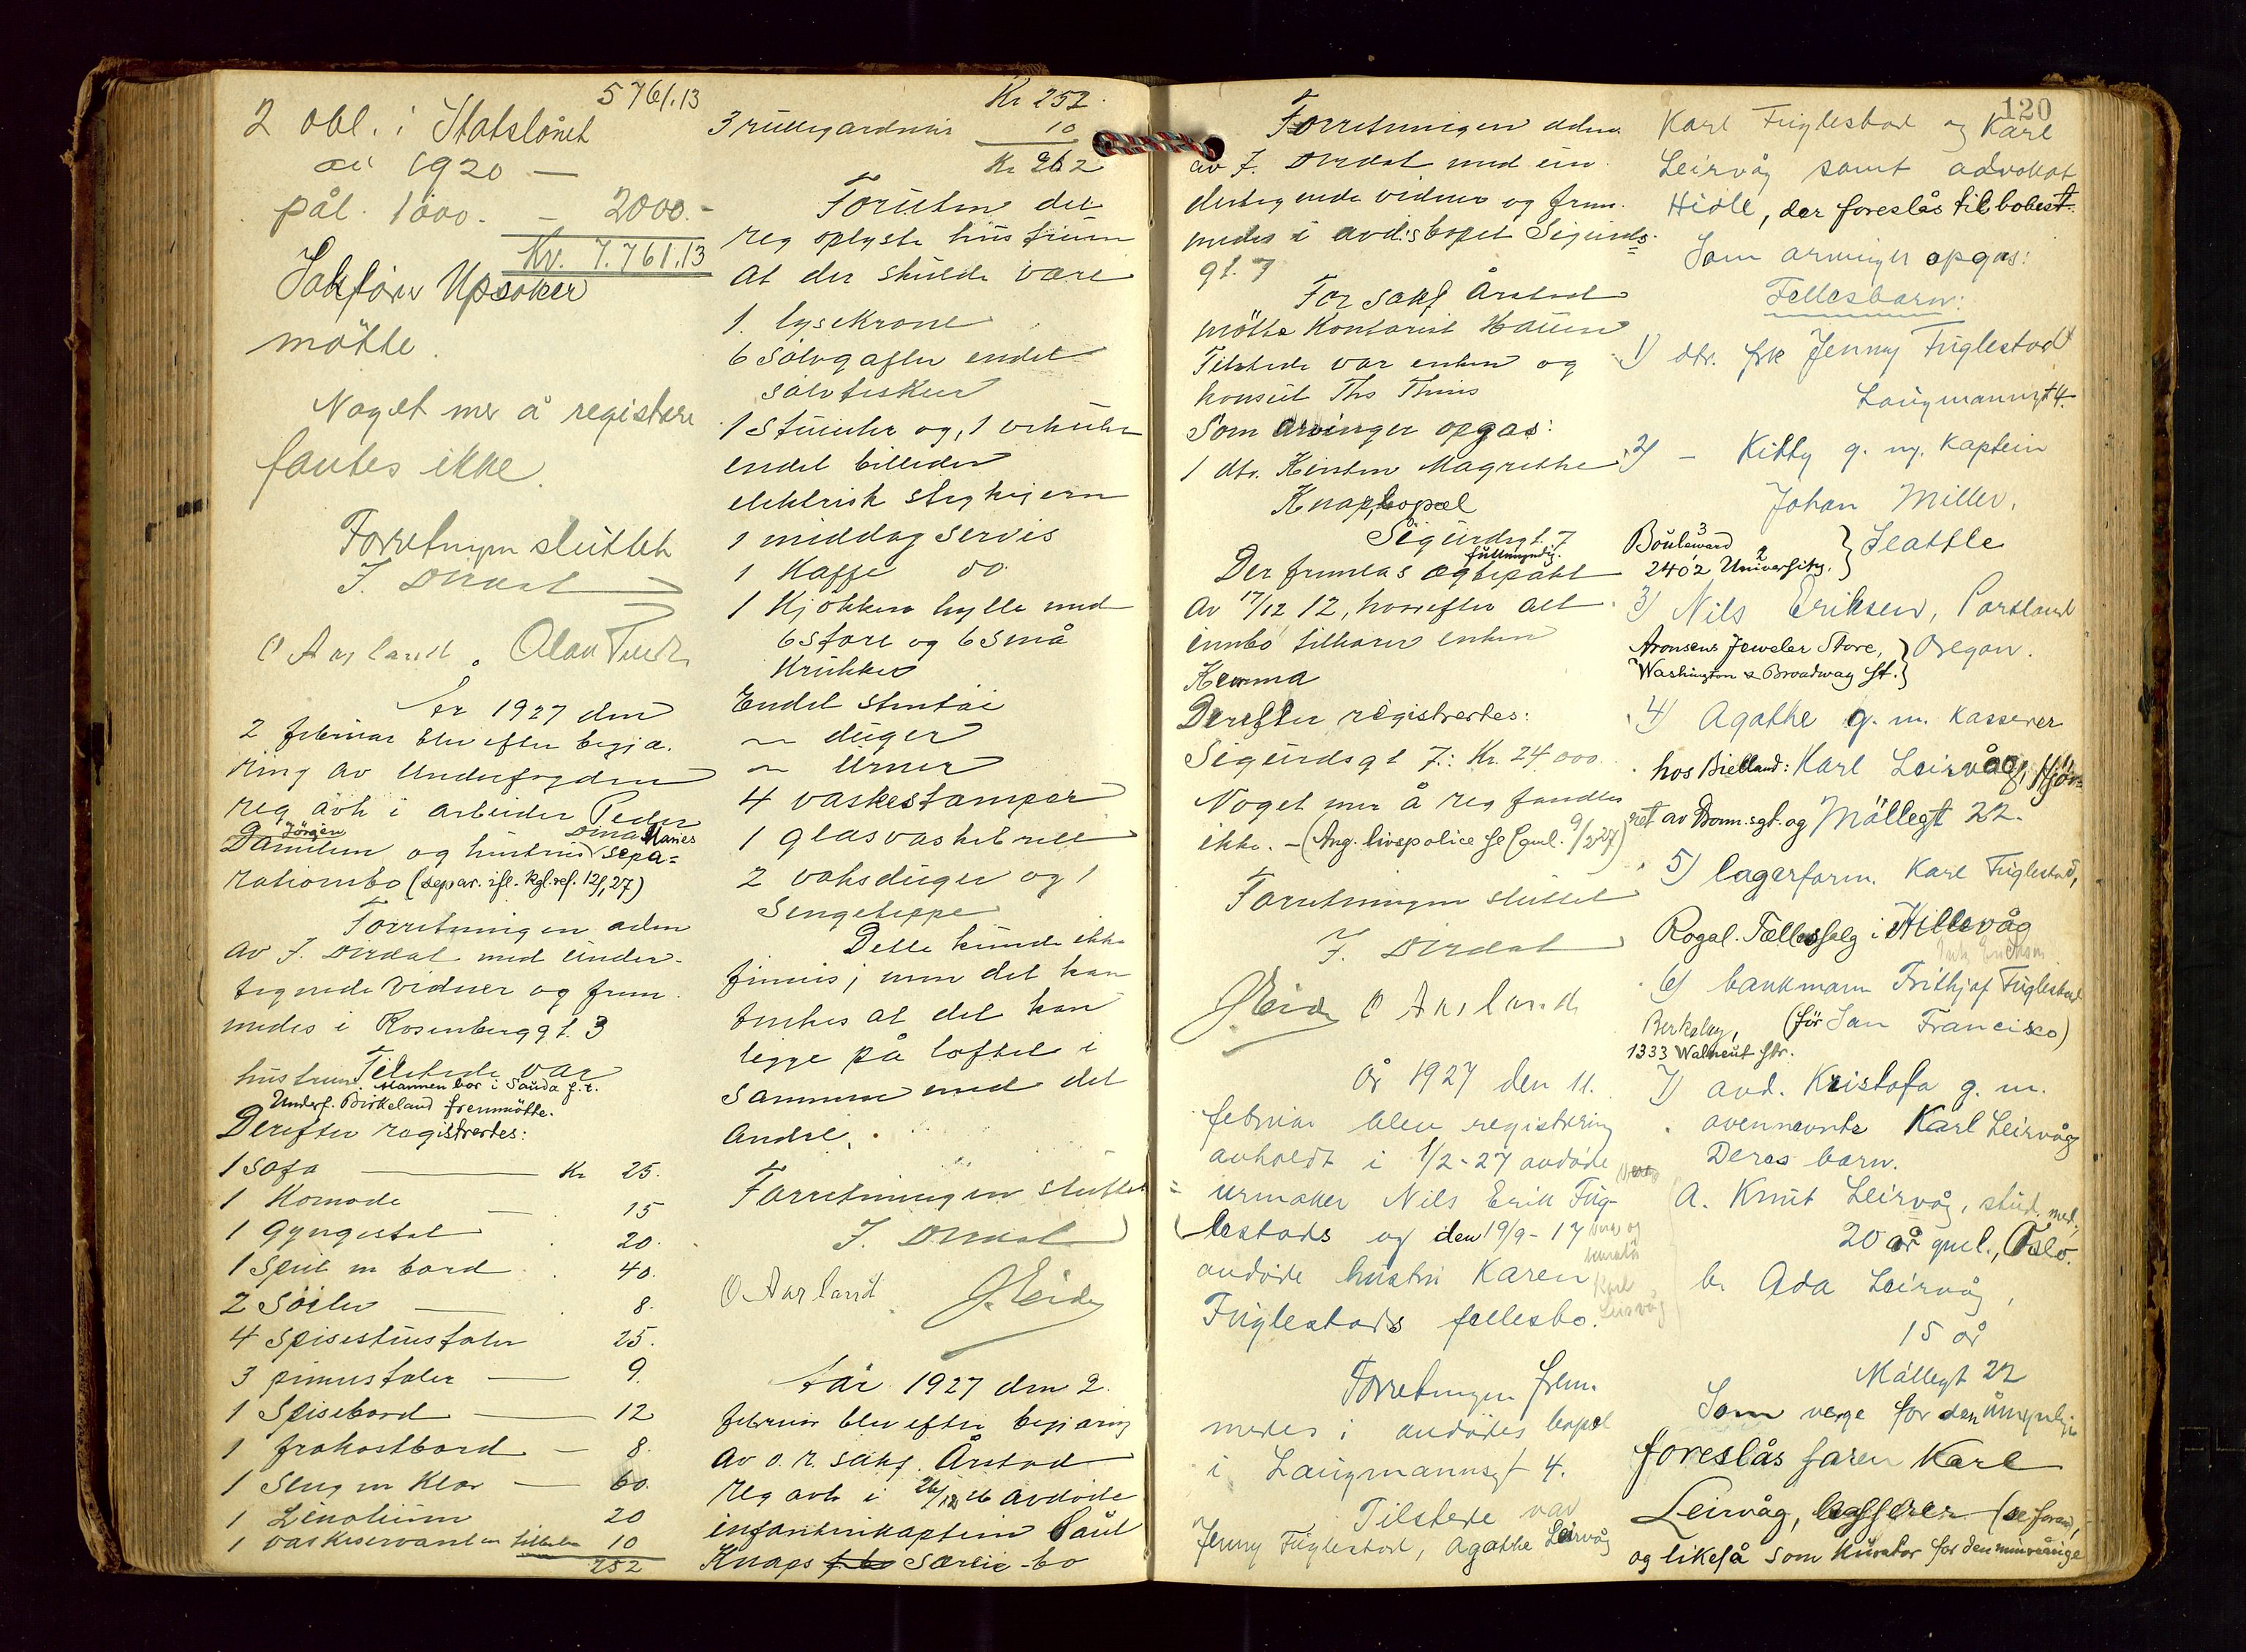 5761.13
2 obl. i Statslånet
av 1920 —
pål. 1000. – 2000.-
Kr. 7.761.13
Sakfører Upsaker
møtte.
Noget mer å registrere
fantes ikke.
Forretningen sluttet
J. Dirdal
O Aarland.
År 1927 den
2 februar blev efter begjæ-
ring av Underfogden
reg avh i arbeider Peder
Jørgen
Danielsen og hustrus Dina Maries sepa=
rationsbo (separ. ifl. kgl. res. 12/1, 27)
Forretningen adm
av J. Dirdal med under-
tegnede vidner og frem-
medes i Rosenberggt. 3
Tilstede var
hustruen. Mannen bor i Sauda f. t.
Underf. Birkeland fremmøtte.
Derefter registrertes:
1 Sofa — Kr 25.
1 Komode — 15
1 gyngestol 20.
1 speil m bord 40.
2 Søiler — 8.
4 spisestuestoler 25.
3 pinnestoler — 9.
1 Spisebord — 12
1 frokostbord — 8.
1 Seng m klær — 60.
1 Linoleum 20
1 vaskeservant m tilbehør 10
252
Kr 252.
3 rullegardiner 10
Kr 262
Foruten det
reg oplyste hustruen
at der skulde være
1. lysekrone
6 sølvgafler endel
sølvteskeer
1 stueuhr og, 1 vekuhr
endel billeder
elektrisk strykejern
1 middag servis
1 Kaffe do.
1 Kjøkken hylle med
6 store og 6 små
Krukker
Endel stentøi
— duger
— urner
4 vaskestamper
1 glasvaskebrett
2 voksduger og 1
Sengeteppe
Dette kunde ikke
finnes; men det kan
tenkes at det kan
ligge på loftet i
sammen med det
andre.
Forretningen sluttet
J. Dirdal
O Aarland J Eide
År 1927 den 2.
februar blev efter begjæring
av o. r. sakf. Årstad
reg avh i 26/12 26 avdøde
infanterikaptein Paul
Knaps særeie-bo
Forretningen adm
av J. Dirdal med un-
dertegnede vidner og frem-
medes i avd:s bopel Sigurds-
gt. 7
For sakf Årstad
møtte Kontorist Hauen
Tilstede var enken og
konsul Ths Thiis
Som arvinger opgas:
1 dtr. Kirsten Magrethe
Knap, bopæl
Sigurdsgt. 7
fuldmyndig.
Der fremlas ægtepakt
av 17/12 12, hvorefter alt
innbo tilhører enken
Kemma
Derefter registrertes:
Sigurdsgt 7: Kr. 24.000.
Noget mer å reg fandtes
ikke. – (Ang. livspolice se (gml. 9/2 27)
Forretningen sluttet
J. Dirdal
J Eide O Aarland
År 1927 den 11.
februar blev registrering
avholdt i 1/2-27 avdøde
urmaker Nils Erik Fug-
lestads og den 19/9 - 17
avdøde hustru Karen
Fuglestads fellesbo.
Karl
Leirvåg
Forretningen frem-
medes i avdødes bopel
i Laugmannsgt 4.
Tilstede var
Jenny Fuglestad, Agathe Leirvåg
120
Karl Fuglestad og Karl
Leirvåg samt advokat
Hidle, der foreslås til bobest.
Som arvinger opgas:
Fellesbarn:
1) dtr. frk Jenny Fuglestad
Laugmannsgt 4.
2) — Kitty g. m. kaptein
Johan Miller.
Boulevard } Seattle
2402 University.
3) Nils Eriksen, Portland
Aronsens Jeweler Store, } Oregon.
Washington & Broadway St.
4) Agathe g. m. kasserer
hos Bielland: Karl Leirvåg, Hjør=
net av Domm.sgt. og Møllegt 22.
5) lagerform. Karl Fuglestad,
Rogal. Fællessalg i Hillevåg
6) bankmann Frithjof Fuglestad
Berkeley, (før San Francisco)
1333 Walneut Str.
7) avd. Kristofa g. m.
ovennevnte Karl Leirvåg
Deres barn.
A. Knut Leirvåg, stud. med.,
20 år gml., Oslo.
b. Ada Leirvåg,
15 år
Møllegt 22
Som verge for den umyndige
foreslås faren Karl
Leirvåg, kasserer (se foran),
og likeså som kurator for den mindreårige